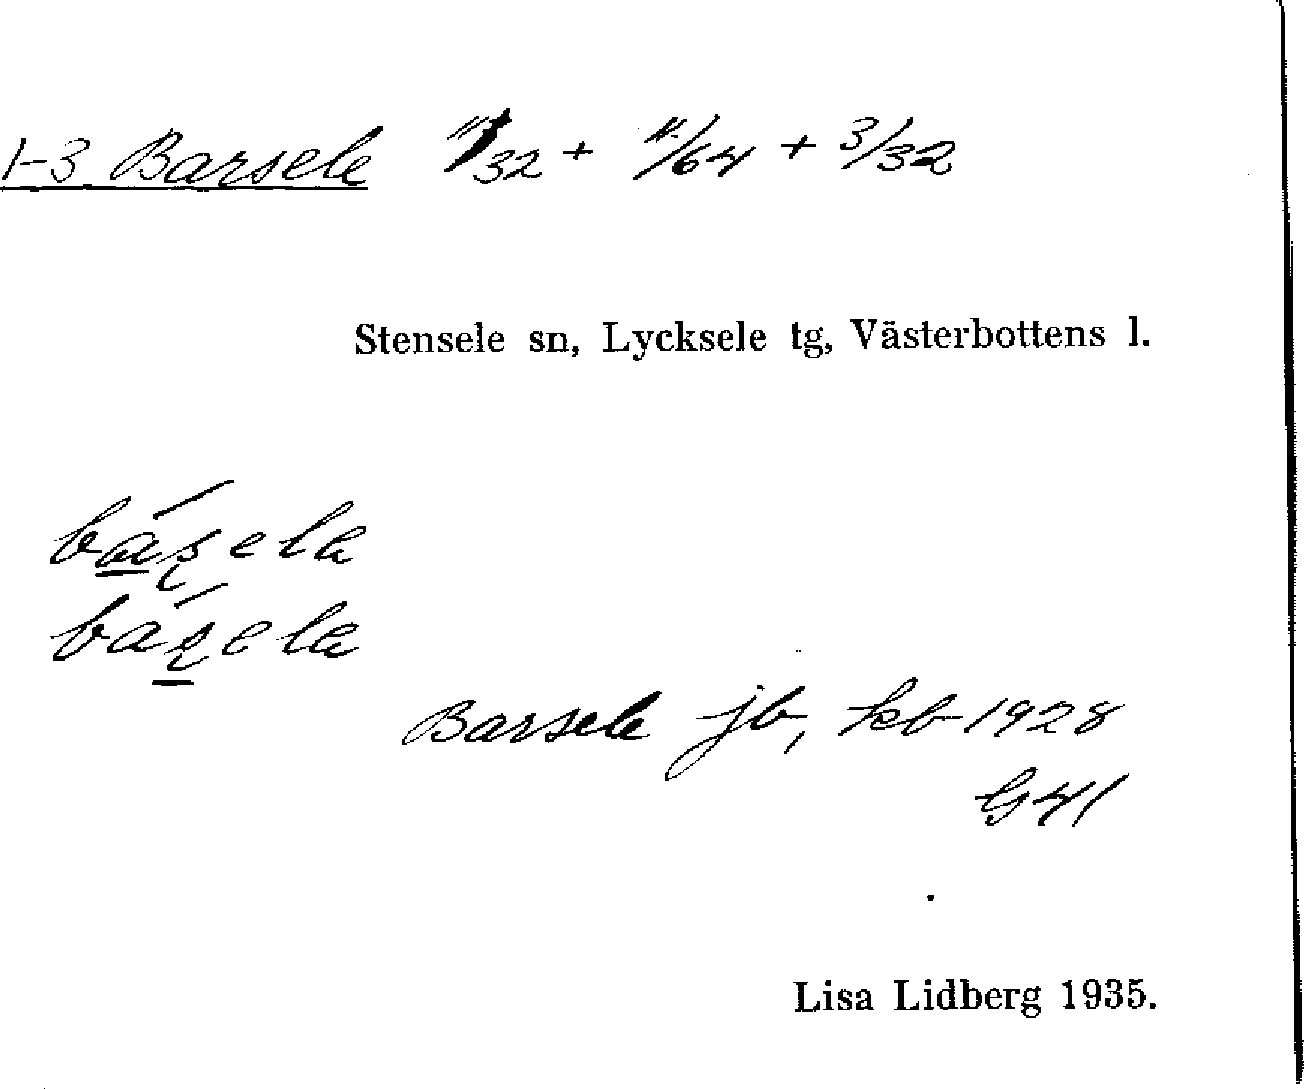 1-3 Barsele 11/32 + 11/64 + 3/32
Stensele sn, Lycksele tg, Västerbottens l.
Barsele jb, kb 1928
G41
Lisa Lidberg 1935.